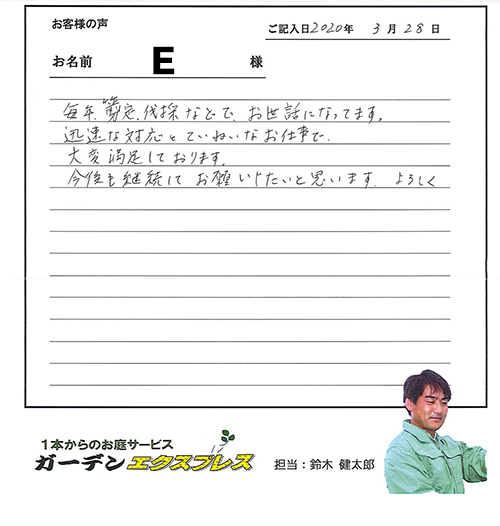 お客様の声
ご記入日2020年 3月28日
お名前 E 様
毎年、剪定、伐採などで、お世話になってます。
迅速な対応とていねいなお仕事で、
大変満足しております。
今後も継続してお願いしたいと思います。よろしく
1本からのお庭サービス
ガーデンエクスプレス
担当：鈴木 健太郎